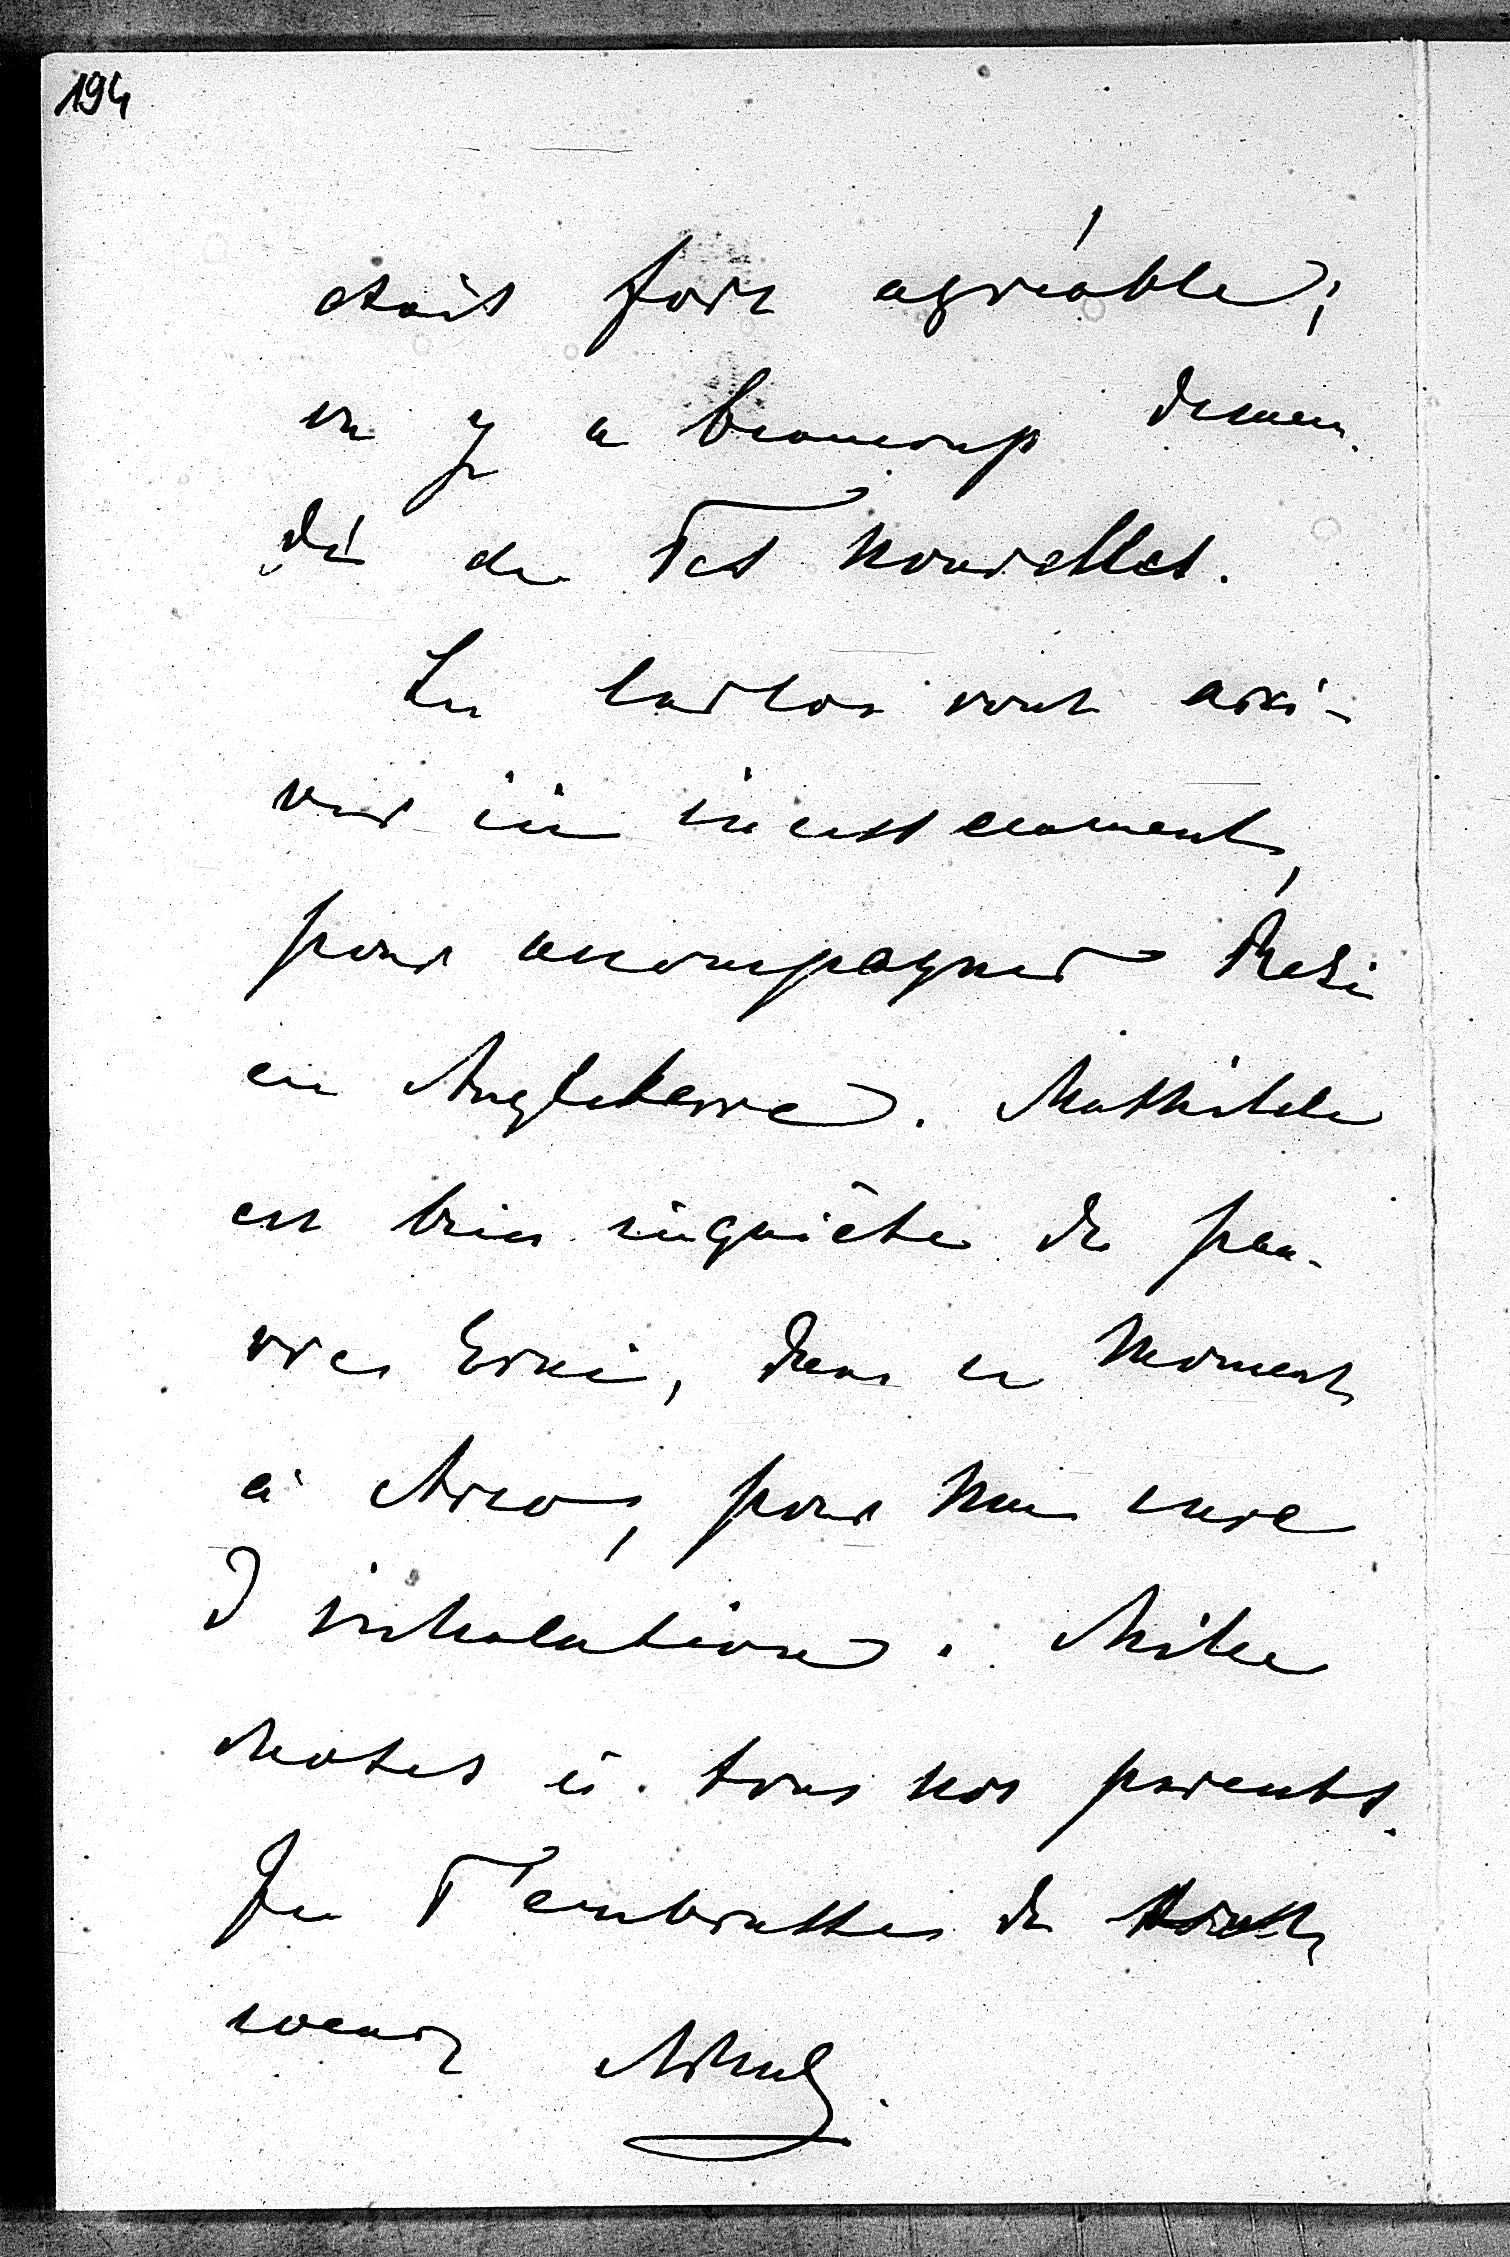 194
était fort agréable;
on y a beaucoup deman-
dé de Tes nouvelles.
Les Carlos vont arri-
ver ici incessamment,
pour accompagner Resi
en Angleterre. Mathilde
est bien inquiète de pau-
vre Erni, dans ce moment
à Arco, pour une cure
d'inhalation. Mille
choses à tous nos parents.
Je T'embrasse de tout
coeur